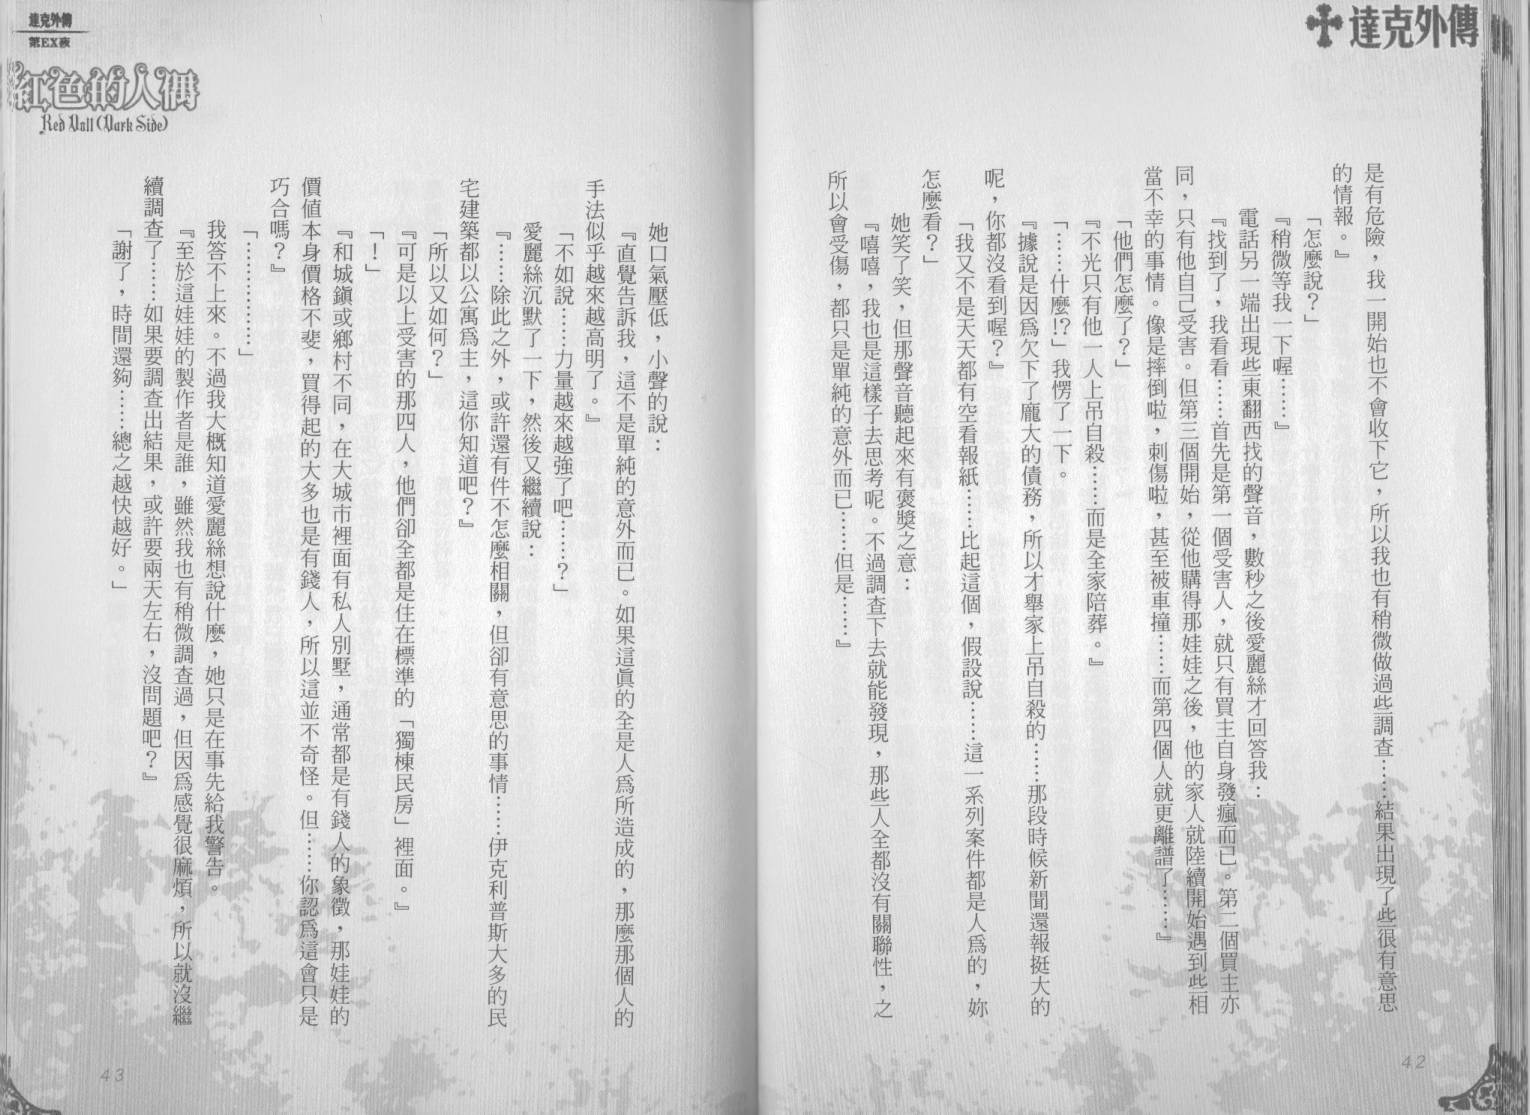 達克外傳
是有危險，我一開始也不會收下它，所以我也有稍微做過些調查……結果出現了些很有意思
的情報。』
「怎麼說？」
『稍微等我一下喔……』
電話另一端出現些東翻西找的聲音，數秒之後愛麗絲才回答我：
『找到了，我看看……首先是第一個受害人，就只有買主自身發瘋而已。第二個買主亦
同，只有他自己受害。但第三個開始，從他購得那娃娃之後，他的家人就陸續開始遇到些相
當不幸的事情。像是摔倒啦，刺傷啦，甚至被車撞……而第四個人就更離譜了……』
「他們怎麼了？」
『不光只有他一人上吊自殺……而是全家陪葬。』
「……什麼!?」我愣了一下。
『據說是因為欠下了龐大的債務，所以才舉家上吊自殺的……那段時候新聞還報挺大的
呢，你都沒看到喔？』
「我又不是天天都有空看報紙……比起這個，假設說……這一系列案件都是人為的，妳
怎麼看？」
她笑了笑，但那聲音聽起來有褒獎之意：
『嘻嘻，我也是這樣子去思考呢。不過調查下去就能發現，那些人全都沒有關聯性，之
所以會受傷，都只是單純的意外而已……但是……』
42
達克外傳
第EX夜
紅色的人偶
Red Doll (Dark Side)
她口氣壓低，小聲的說：
『直覺告訴我，這不是單純的意外而已。如果這真的全是人為所造成的，那麼那個人的
手法似乎越來越高明了。』
「不如說……力量越來越強了吧……？」
愛麗絲沉默了一下，然後又繼續說：
『……除此之外，或許還有件不怎麼相關，但卻有意思的事情……伊克利普斯大多的民
宅建築都以公寓為主，這你知道吧？』
「所以又如何？」
『可是以上受害的那四人，他們卻全都是住在標準的「獨棟民房」裡面。』
「！」
『和城鎮或鄉村不同，在大城市裡面有私人別墅，通常都是有錢人的象徵，那娃娃的
價值本身價格不斐，買得起的大多也是有錢人，所以這並不奇怪。但……你認為這會只是
巧合嗎？』
「……………」
我答不上來。不過我大概知道愛麗絲想說什麼，她只是在事先給我警告。
『至於這娃娃的製作者是誰，雖然我也有稍微調查過，但因為感覺很麻煩，所以就沒繼
續調查了……如果要調查出結果，或許要兩天左右，沒問題吧？』
「謝了，時間還夠……總之越快越好。」
43